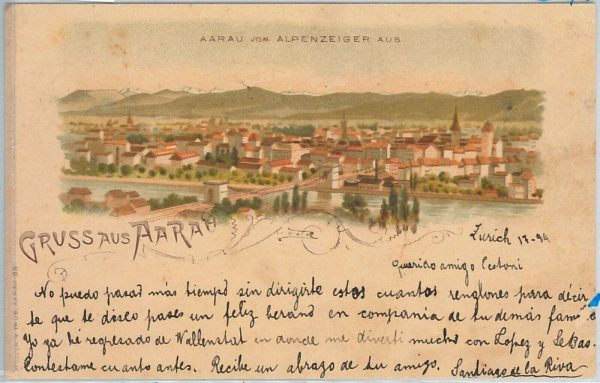 AARAU VOM ALPENZEIGER AUS.
GRUSS AUS AARAU
Zurich 17-99
Querido amigo Cestoni
No puedo pasar más tiempo sin dirigirte estos cuantos renglones para décir
te que te deseo pases un feliz berano en compania de tu demás fam
Yo ya hé regresado de Wallenstat en donde me diverti mucho con Lopez y Sebas.
Contestame cuanto antes. Recibe un abrazo de tu amigo. Santiago de la Riva